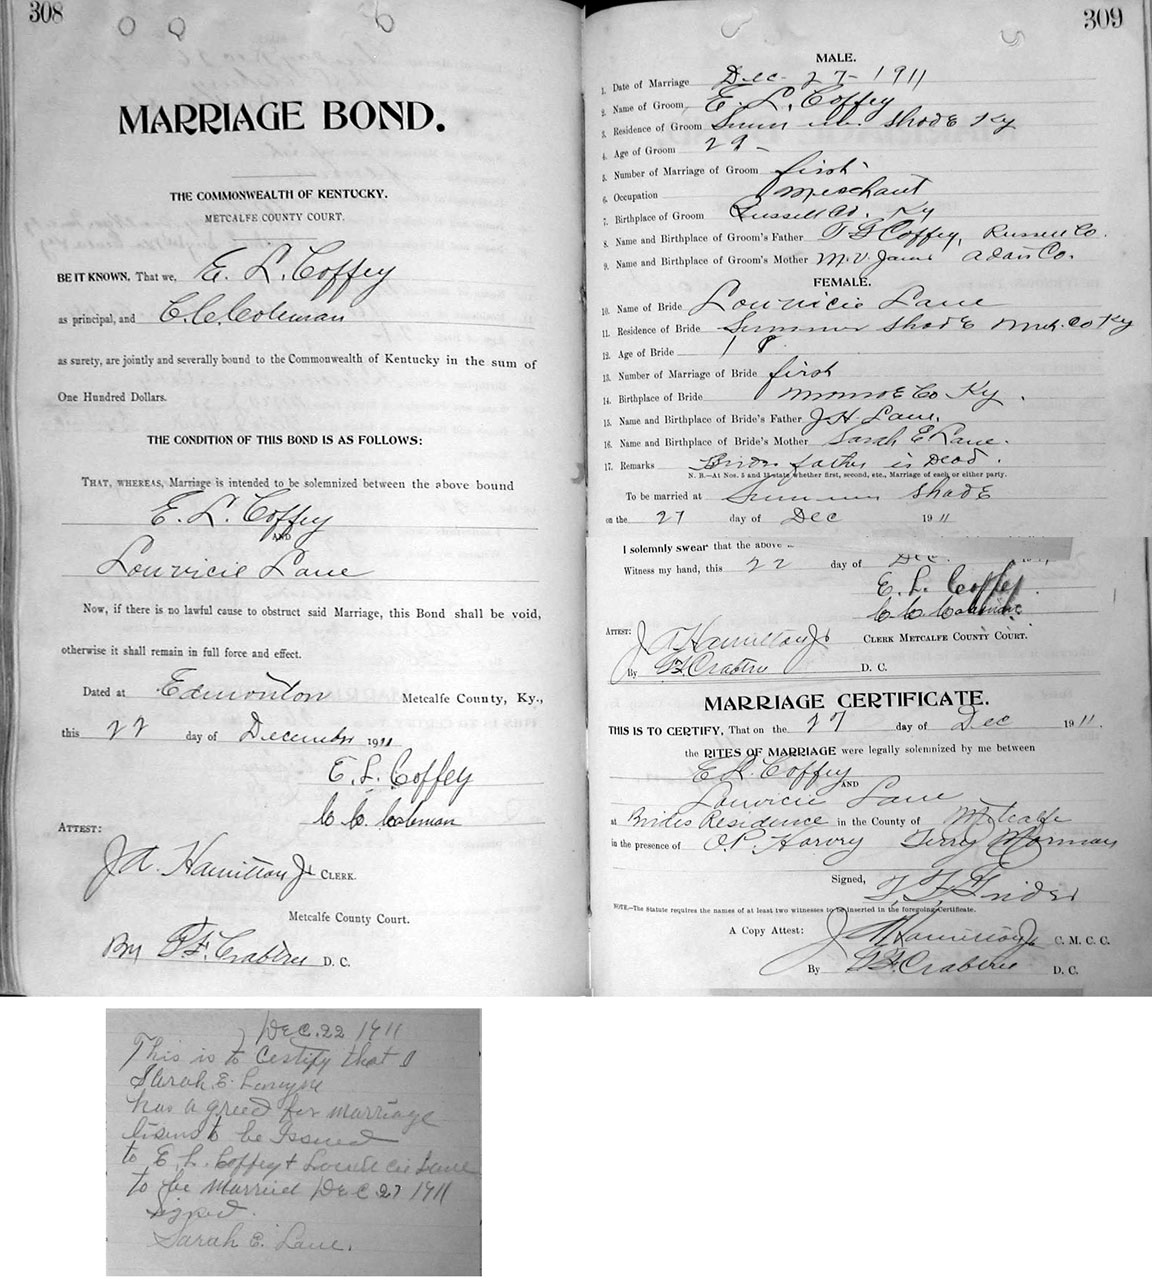 308
MARRIAGE BOND.
THE COMMONWEALTH OF KENTUCKY.
METCALFE COUNTY COURT.
BE IT KNOWN, That we, E. L. Coffey
as principal, and C.C. Coleman
as surety, are jointly and severally bound to the Commonwealth of Kentucky in the sum of
One Hundred Dollars.
THE CONDITION OF THIS BOND IS AS FOLLOWS:
THAT, WHEREAS, Marriage is intended to be solemnized between the above bound
E. L. Coffey
AND
Louvicie Lane
Now, if there is no lawful cause to obstruct said Marriage, this Bond shall be void,
otherwise it shall remain in full force and effect.
Dated at Edmonton Metcalfe County, Ky.,
this 22 day of December 1911
E. L. Coffey
C. C. Coleman
ATTEST:
J A. Hamilton Jr CLERK.
Metcalfe County Court.
By G.F. Crabtree D. C.
309
MALE.
1. Date of Marriage Dec- 27- 1911
2. Name of Groom E. L. Coffey
3. Residence of Groom Summer Shade Ky
4. Age of Groom 29-
5. Number of Marriage of Groom first
6. Occupation Merchant
7. Birthplace of Groom Russell Co. Ky
8. Name and Birthplace of Groom's Father Coffey, Russell Co.
9. Name and Birthplace of Groom's Mother M.V. Janes Adair Co.
FEMALE.
10. Name of Bride Louvicie Lane
11. Residence of Bride Summer Shade Met. Co Ky
12. Age of Bride 18
13. Number of Marriage of Bride first
14. Birthplace of Bride Monroe Co Ky.
15. Name and Birthplace of Bride's Father J.H. Lane.
16. Name and Birthplace of Bride's Mother Sarah E Lane.
17. Remarks Brides father is Dead.
N. B.—At Nos. 5 and 13 state whether first, second, etc., Marriage of each or either party.
To be married at Summer Shade
on the 27 day of Dec 1911
I solemnly swear that the above
Witness my hand, this 22 day of Dec
E. L. Coffey
C. C. Coleman
ATTEST:
J A Hamilton Jr CLERK METCALFE COUNTY COURT.
By G F Crabtree D. C.
MARRIAGE CERTIFICATE.
THIS IS TO CERTIFY, That on the 27 day of Dec 1911.
the RITES OF MARRIAGE were legally solemnized by me between
E L. Coffey
AND
Louvicie Lane
at Brides Residence in the County of Metcalfe
in the presence of O.P. Harvey
Signed,
NOTE.—The Statute requires the names of at least two witnesses to be inserted in the foregoing Certificate.
A Copy Attest: J A Hamilton Jr C. M. C. C.
By G F Crabtree D. C.
Dec. 22 1911
This is to Certify that I
Sarah E.
has agreed for marriage
to be Issued
to E. L. Coffey + Lane
to be Married Dec 27 1911
signed.
Sarah E. Lane.